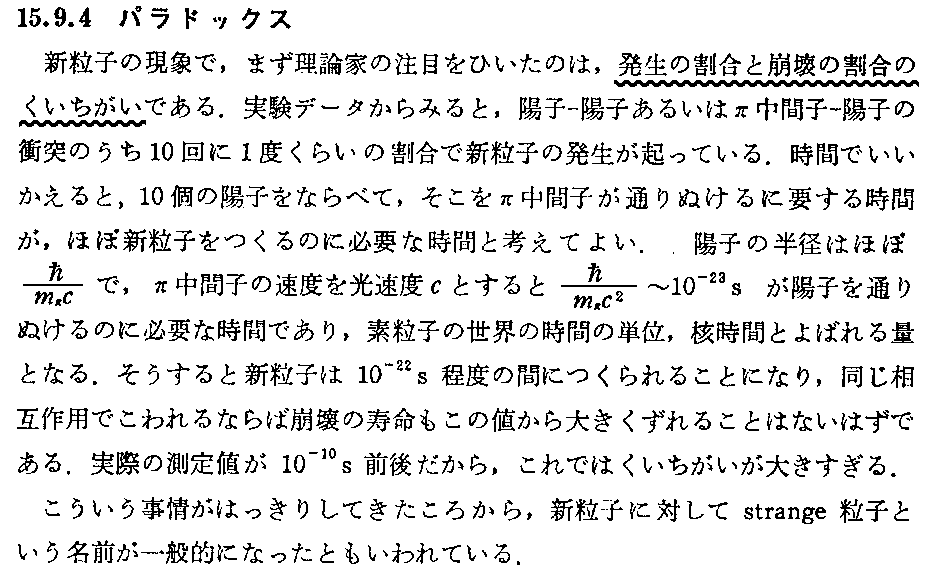 15.9.4 パラドックス
新粒子の現象で，まず理論家の注目をひいたのは，発生の割合と崩壊の割合の
くいちがいである．実験データからみると，陽子-陽子あるいはπ中間子-陽子の
衝突のうち10回に1度くらいの割合で新粒子の発生が起っている．時間でいい
かえると，10個の陽子をならべて，そこをπ中間子が通りぬけるに要する時間
が，ほぼ新粒子をつくるのに必要な時間と考えてよい．陽子の半径はほぼ
ℏ/(m_π c) で，π中間子の速度を光速度 c とすると ℏ/(m_π c²) ～10⁻²³ s が陽子を通り
ぬけるのに必要な時間であり，素粒子の世界の時間の単位，核時間とよばれる量
となる．そうすると新粒子は 10⁻²² s 程度の間につくられることになり，同じ相
互作用でこわれるならば崩壊の寿命もこの値から大きくずれることはないはずで
ある．実際の測定値が 10⁻¹⁰ s 前後だから，これではくいちがいが大きすぎる．
こういう事情がはっきりしてきたころから，新粒子に対して strange 粒子と
いう名前が一般的になったともいわれている．